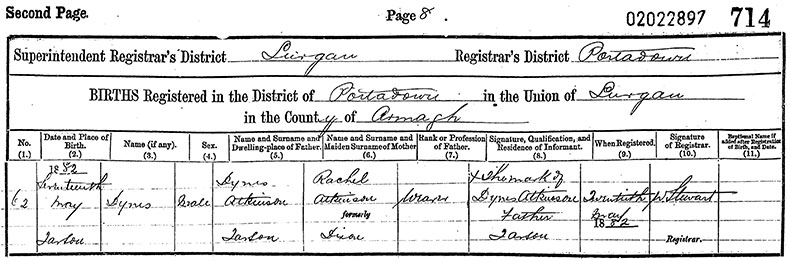 Second Page.
Page 8
02022897 714
Superintendent Registrar's District Lurgan Registrar's District Portadown
BIRTHS Registered in the District of Portadown in the Union of Lurgan
in the County of Armagh
No. (1.) Date and Place of Birth. (2.) Name (if any). (3.) Sex. (4.) Name and Surname and Dwelling-place of Father. (5.) Name and Surname and Maiden Surname of Mother (6.) Rank or Profession of Father. (7.) Signature, Qualification, and Residence of Informant. (8.) When Registered. (9.) Signature of Registrar. (10.) Baptismal Name if added after Registration of Birth, and Date. (11.)
1882
Seventeenth Dymes Rachel X The mark of
62 May Dymes Male Atkinson Atkinson Weaver Dymes Atkinson Twentieth W Stewart
formerly Father May
1882
Tarson Tarson Dixon Tarson Registrar.